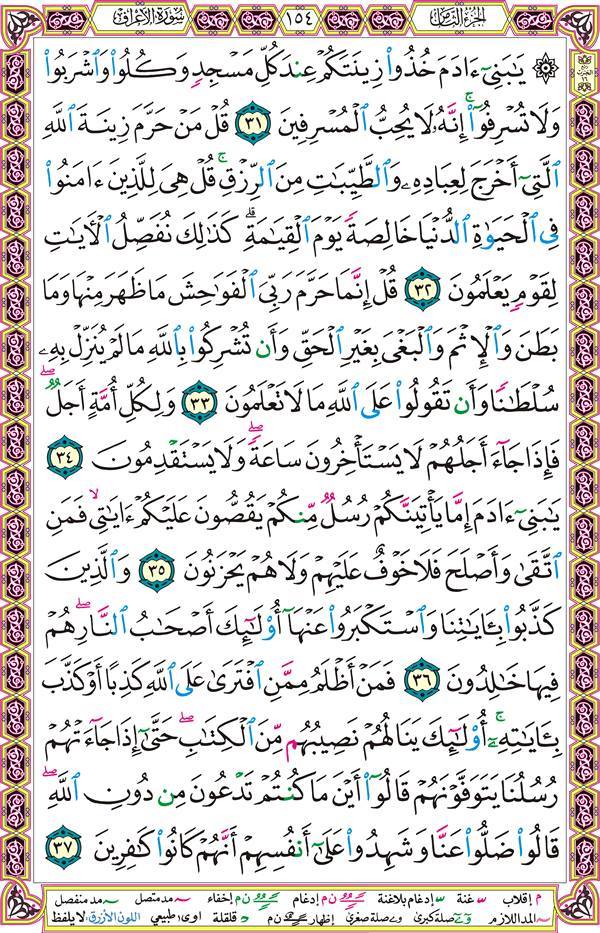 الجزء الثامن ١٥٤ سورة الأعراف
۞ يَٰبَنِىٓ ءَادَمَ خُذُوا۟ زِينَتَكُمْ عِندَ كُلِّ مَسْجِدٍ وَكُلُوا۟ وَٱشْرَبُوا۟
وَلَا تُسْرِفُوٓا۟ ۚ إِنَّهُۥ لَا يُحِبُّ ٱلْمُسْرِفِينَ ٣١ قُلْ مَنْ حَرَّمَ زِينَةَ ٱللَّهِ
ٱلَّتِىٓ أَخْرَجَ لِعِبَادِهِۦ وَٱلطَّيِّبَٰتِ مِنَ ٱلرِّزْقِ ۚ قُلْ هِىَ لِلَّذِينَ ءَامَنُوا۟
فِى ٱلْحَيَوٰةِ ٱلدُّنْيَا خَالِصَةً يَوْمَ ٱلْقِيَٰمَةِ ۗ كَذَٰلِكَ نُفَصِّلُ ٱلْءَايَٰتِ
لِقَوْمٍ يَعْلَمُونَ ٣٢ قُلْ إِنَّمَا حَرَّمَ رَبِّىَ ٱلْفَوَٰحِشَ مَا ظَهَرَ مِنْهَا وَمَا
بَطَنَ وَٱلْإِثْمَ وَٱلْبَغْىَ بِغَيْرِ ٱلْحَقِّ وَأَن تُشْرِكُوا۟ بِٱللَّهِ مَا لَمْ يُنَزِّلْ بِهِۦ
سُلْطَٰنًا وَأَن تَقُولُوا۟ عَلَى ٱللَّهِ مَا لَا تَعْلَمُونَ ٣٣ وَلِكُلِّ أُمَّةٍ أَجَلٌ ۖ
فَإِذَا جَآءَ أَجَلُهُمْ لَا يَسْتَأْخِرُونَ سَاعَةً ۖ وَلَا يَسْتَقْدِمُونَ ٣٤
يَٰبَنِىٓ ءَادَمَ إِمَّا يَأْتِيَنَّكُمْ رُسُلٌ مِّنكُمْ يَقُصُّونَ عَلَيْكُمْ ءَايَٰتِى ۙ فَمَنِ
ٱتَّقَىٰ وَأَصْلَحَ فَلَا خَوْفٌ عَلَيْهِمْ وَلَا هُمْ يَحْزَنُونَ ٣٥ وَٱلَّذِينَ
كَذَّبُوا۟ بِـَٔايَٰتِنَا وَٱسْتَكْبَرُوا۟ عَنْهَآ أُو۟لَٰٓئِكَ أَصْحَٰبُ ٱلنَّارِ ۖ هُمْ
فِيهَا خَٰلِدُونَ ٣٦ فَمَنْ أَظْلَمُ مِمَّنِ ٱفْتَرَىٰ عَلَى ٱللَّهِ كَذِبًا أَوْ كَذَّبَ
بِـَٔايَٰتِهِۦٓ ۚ أُو۟لَٰٓئِكَ يَنَالُهُمْ نَصِيبُهُم مِّنَ ٱلْكِتَٰبِ ۖ حَتَّىٰٓ إِذَا جَآءَتْهُمْ
رُسُلُنَا يَتَوَفَّوْنَهُمْ قَالُوٓا۟ أَيْنَ مَا كُنتُمْ تَدْعُونَ مِن دُونِ ٱللَّهِ ۖ
قَالُوا۟ ضَلُّوا۟ عَنَّا وَشَهِدُوا۟ عَلَىٰٓ أَنفُسِهِمْ أَنَّهُمْ كَانُوا۟ كَٰفِرِينَ ٣٧
م إقلاب غنة إدغام بلاغنة ن م إدغام ن م إخفاء مد متصل مد منفصل
المد اللازم صلة كبرى صلة صغرى إظهار ن م قلقلة اوى طبيعي اللون الأزرق: لا يلفظ